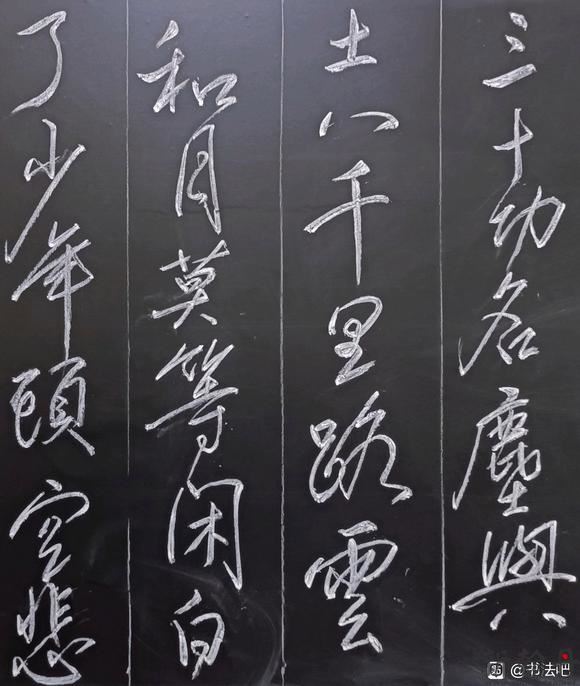 三十功名塵與
土八千里路雲
和月莫等闲白
了少年頭空悲
@书去吧